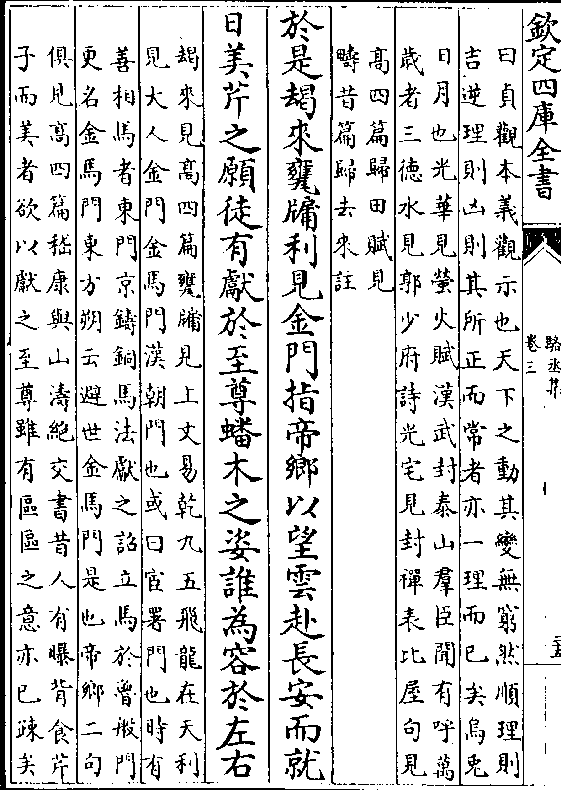 欽定四庫全書
駱丞集
卷三
曰貞觀本義觀示也天下之動其變無窮然順理則
吉逆理則凶則其所正而常者亦一理而已矣烏兎
日月也光華見螢火賦漢武封泰山羣臣聞有呼萬
歲者三德水見郭少府詩光宅見封禪表比屋句見
髙四篇歸田賦見
疇昔篇歸去來註
於是朅來甕牖利見金門指帝鄉以望雲赴長安而就
日美芹之願徒有獻於至尊蟠木之姿誰為容於左右
朅來見髙四篇甕牖見上文易乾九五飛龍在天利
見大人金門金馬門漢朝門也或曰宦署門也時有
善相馬者東門京鑄銅馬法獻之詔立馬於魯般門
更名金馬門東方朔云避世金馬門是也帝鄉二句
俱見髙四篇嵇康與山濤絶交書昔人有曝背食芹
子而美者欲以獻之至尊雖有區區之意亦已疎矣